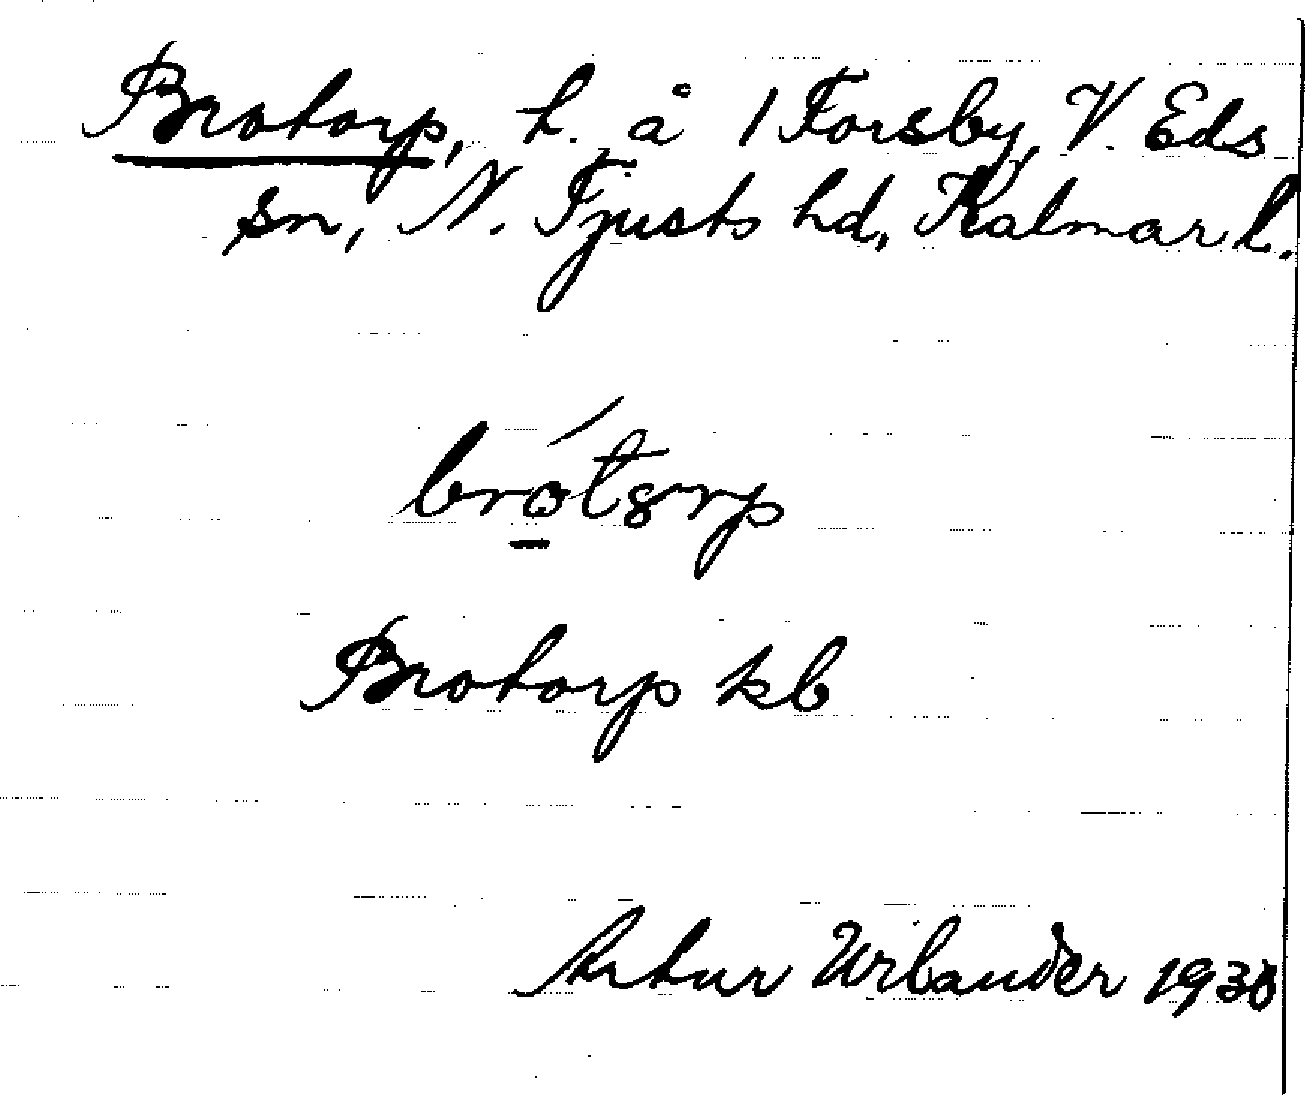 Brotorp, h. å 1 Forsby, V. Eds
sn, N. Tjusts hd, Kalmar l.
bro̱´tɞrp
Brotorp kb
Artur Urbander 1930